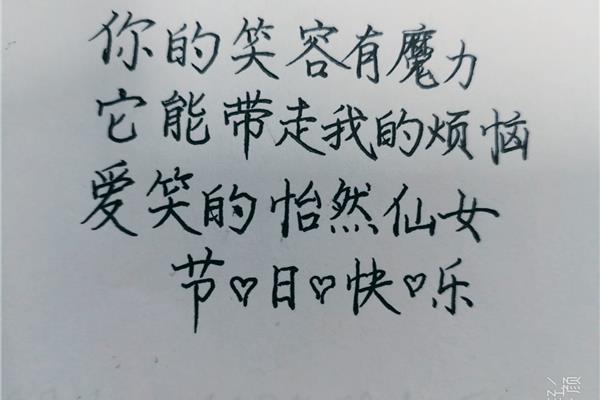 你的笑容有魔力
它能带走我的烦恼
爱笑的怡然仙女
节♡日♡快♡乐